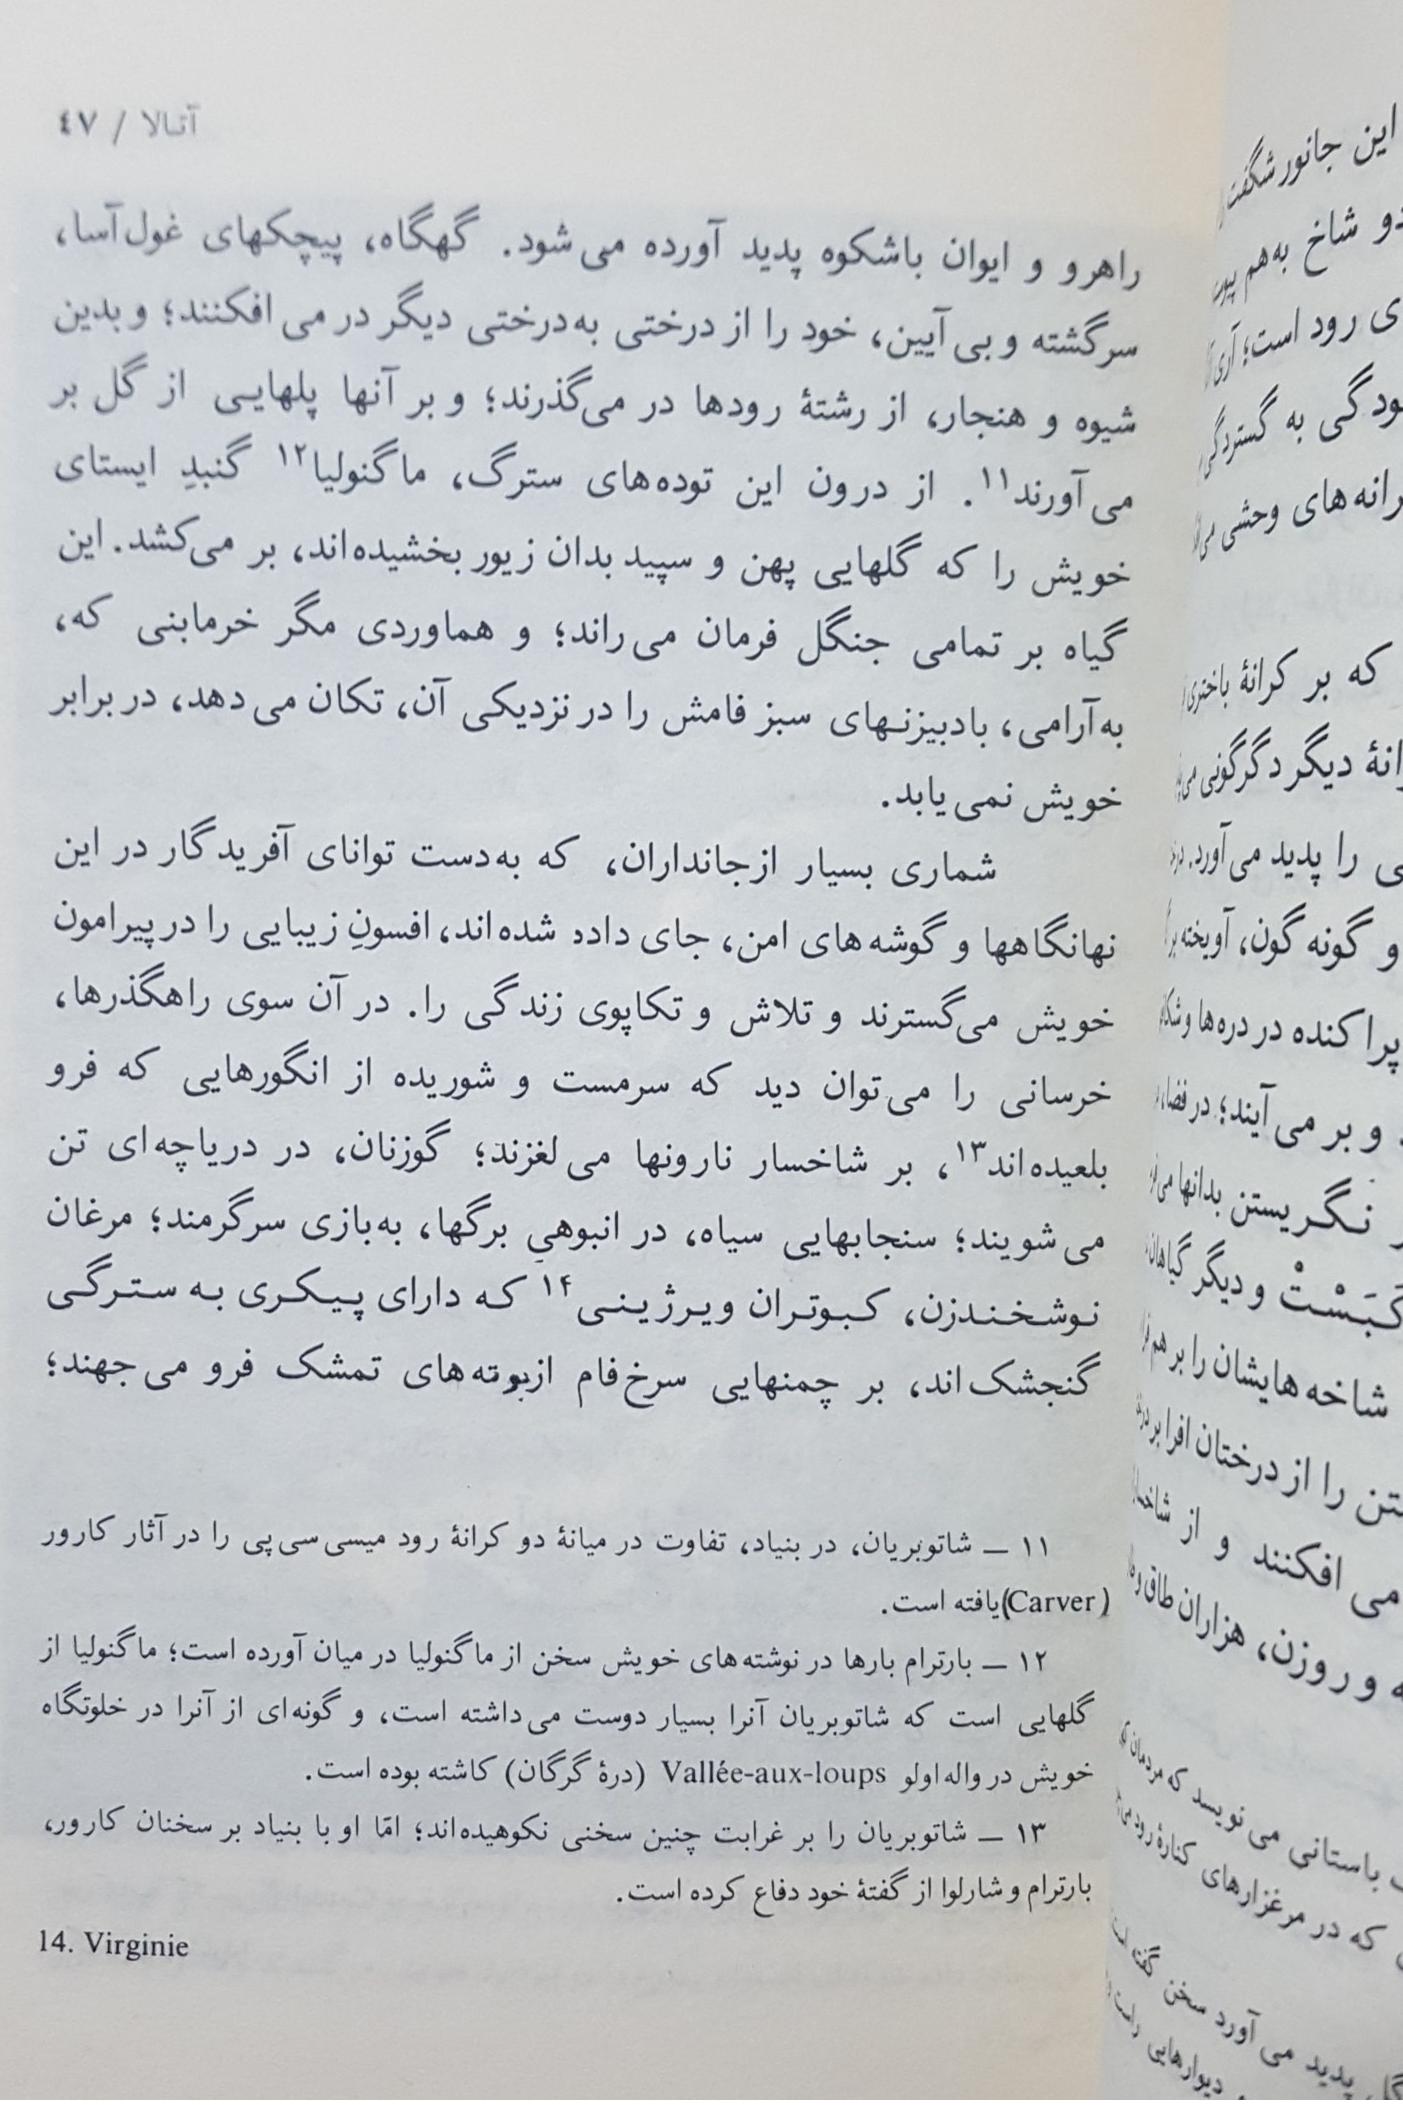 آتالا / ۴۷
راهرو و ایوان باشکوه پدید آورده می‌شود. گهگاه، پیچکهای غول‌آسا،
سرگشته و بی‌آیین، خود را از درختی به‌درختی دیگر در می‌افکنند؛ و بدین
شیوه و هنجار، از رشتهٔ رودها در می‌گذرند؛ و بر آنها پلهایی از گل بر
می‌آورند۱۱. از درون این توده‌های سترگ، ماگنولیا۱۲ گنبدِ ایستای
خویش را که گلهایی پهن و سپید بدان زیور بخشیده‌اند، بر می‌کشد. این
گیاه بر تمامی جنگل فرمان می‌راند؛ و هماوردی مگر خرمابنی که،
به‌آرامی، بادبیزنهای سبز فامش را در نزدیکی آن، تکان می‌دهد، در برابر
خویش نمی‌یابد.
شماری بسیار ازجانداران، که به‌دست توانای آفریدگار در این
نهانگاهها و گوشه‌های امن، جای داده شده‌اند، افسونِ زیبایی را در پیرامون
خویش می‌گسترند و تلاش و تکاپوی زندگی را. در آن سوی راهگذرها،
خرسانی را می‌توان دید که سرمست و شوریده از انگورهایی که فرو
بلعیده‌اند۱۳، بر شاخسار نارونها می‌لغزند؛ گوزنان، در دریاچه‌ای تن
می‌شویند؛ سنجابهایی سیاه، در انبوهیِ برگها، به‌بازی سرگرمند؛ مرغان
نوشخندزن، کبوتران ویرژینی۱۴ که دارای پیکری به سترگی
گنجشک‌اند، بر چمنهایی سرخ‌فام ازبوته‌های تمشک فرو می‌جهند؛
۱۱ — شاتوبریان، در بنیاد، تفاوت در میانهٔ دو کرانهٔ رود میسی‌سی‌پی را در آثار کارور
(Carver)یافته است.
۱۲ — بارترام بارها در نوشته‌های خویش سخن از ماگنولیا در میان آورده است؛ ماگنولیا از
گلهایی است که شاتوبریان آنرا بسیار دوست می‌داشته است، و گونه‌ای از آنرا در خلوتگاه
خویش در واله‌اولو Vallée-aux-loups (درهٔ گرگان) کاشته بوده است.
۱۳ — شاتوبریان را بر غرابت چنین سخنی نکوهیده‌اند؛ امّا او با بنیاد بر سخنان کارور،
بارترام و شارلوا از گفتهٔ خود دفاع کرده است.
14. Virginie
این جانور شگفت
دو شاخ به‌هم
ی رود است؛ آری
ودگی به گستردگی
رانه‌های وحشی
که بر کرانهٔ باختری
انهٔ دیگر دگرگونی
ی را پدید می‌آورد.
و گونه‌گون، آویخته
پراکنده در دره‌ها
و بر می‌آیند؛ در
نگریستن بدانها
کَبَسْتْ و دیگر گیاهان
شاخه‌هایشان را بر هم
تن را از درختان افرا بر
می‌افکنند و از
و روزن، هزاران طاق و
باستانی می‌نویسد که مردمان
که در مرغزارهای کنارهٔ رود
پدید می‌آورد سخن گفته است
دیوارهایی راست